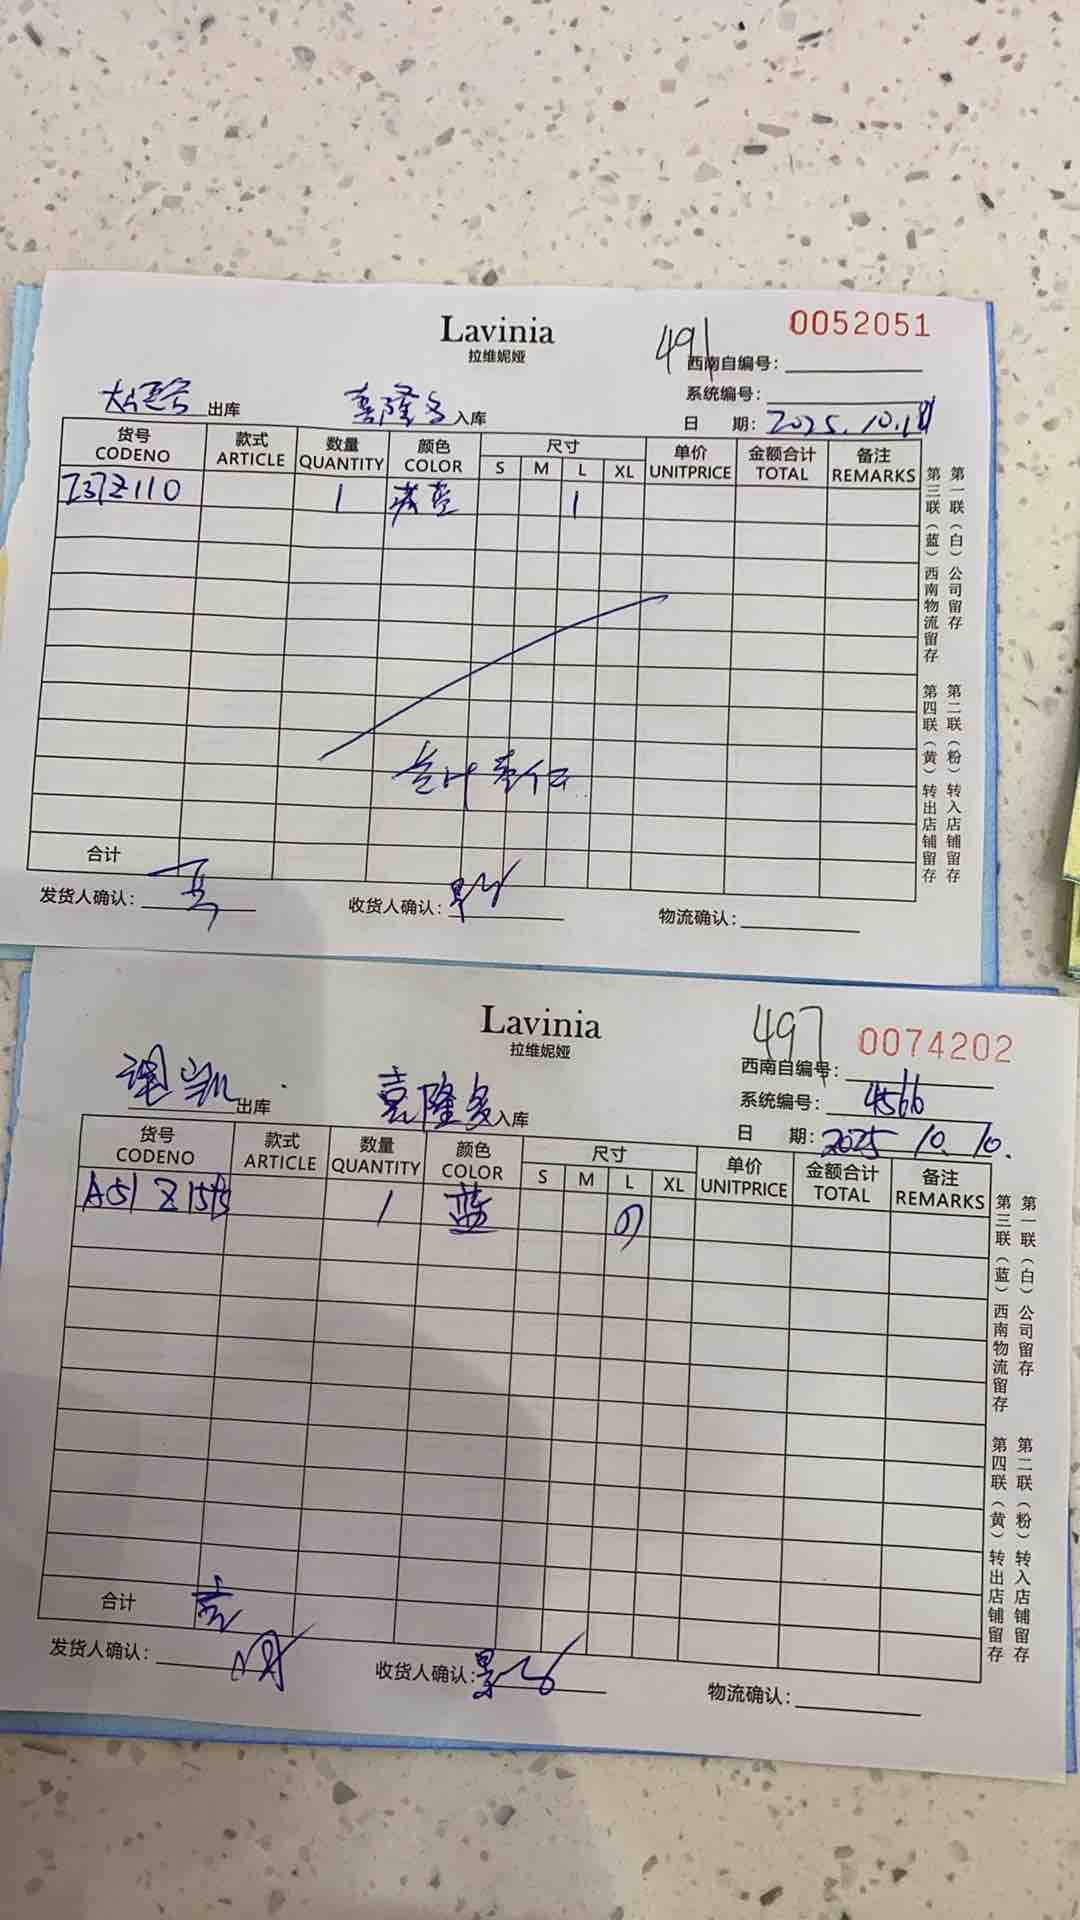 Lavinia
拉维妮娅
491
0052051
西南自编号:
系统编号:
出库
嘉隆多 入库
日 期: 2025.10.1
货号 款式 数量 颜色 尺寸 单价 金额合计 备注
CODENO ARTICLE QUANTITY COLOR S M L XL UNITPRICE TOTAL REMARKS
Z110 1 1
总计壹件
合计
发货人确认:
收货人确认:
物流确认:
第一联(白)公司留存
第二联(粉)转入店铺留存
第三联(蓝)西南物流留存
第四联(黄)转出店铺留存
Lavinia
拉维妮娅
497
0074202
西南自编号:
系统编号: 4566
出库
嘉隆多 入库
日 期: 2025 10. 10.
货号 款式 数量 颜色 尺寸 单价 金额合计 备注
CODENO ARTICLE QUANTITY COLOR S M L XL UNITPRICE TOTAL REMARKS
1 蓝
合计
发货人确认:
收货人确认:
物流确认:
第一联(白)公司留存
第二联(粉)转入店铺留存
第三联(蓝)西南物流留存
第四联(黄)转出店铺留存